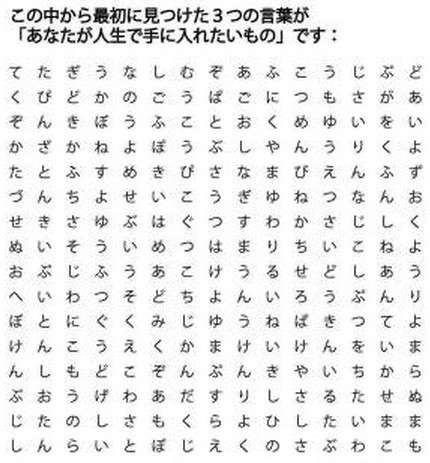 この中から最初に見つけた３つの言葉が
「あなたが人生で手に入れたいもの」です：
て た ぎ う な し む ぞ あ ふ こ う じ ぷ ど
く び ど か の ご う ぱ ご に つ も さ が あ
ぞ ん き ぼ う ふ こ と お く め ゆ い を い
か ざ か ね よ ぼ う ぶ し や ん う り く よ
た と ふ す め き ぴ さ な ま び え ん ふ ず
づ ん ち よ せ い こ う ぎ ゆ ね つ な ん お
せ き さ ゆ ぶ は ぐ つ す わ か さ じ し く
ぬ い そ う い め つ は ま り ち い こ ね よ
お ぶ じ ふ う あ こ け う る せ ど し あ う
へ い わ つ そ ど ち よ ん い ろ う ぷ ん り
ぼ と に ぐ く み じ ゆ う ね ば き つ て よ
け ん こ う え く か ま け い け ん を い ま
ん し も ど こ ぞ ん ぷ ん き や い ち か ら
ぶ お う げ わ あ だ す り し さ る た せ ぬ
じ た の し さ も く ら よ ひ し た い ま ま
し ん ら い と ぼ じ え く の さ ぶ わ こ も